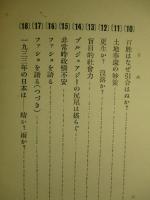 (10) 百姓はなぜ引合はぬか?
(11) 土地奉還の妙策
(12) 更生か? 没落か?
(13) 盲目的社會力
(14) ブルジョアジーの尻尾は搖らぐ
(15) 非常時政權不安
(16) ファショを語る
(17) ファショを語る(つづき)
(18) 一九三三年の日本は 晴か?雨か?